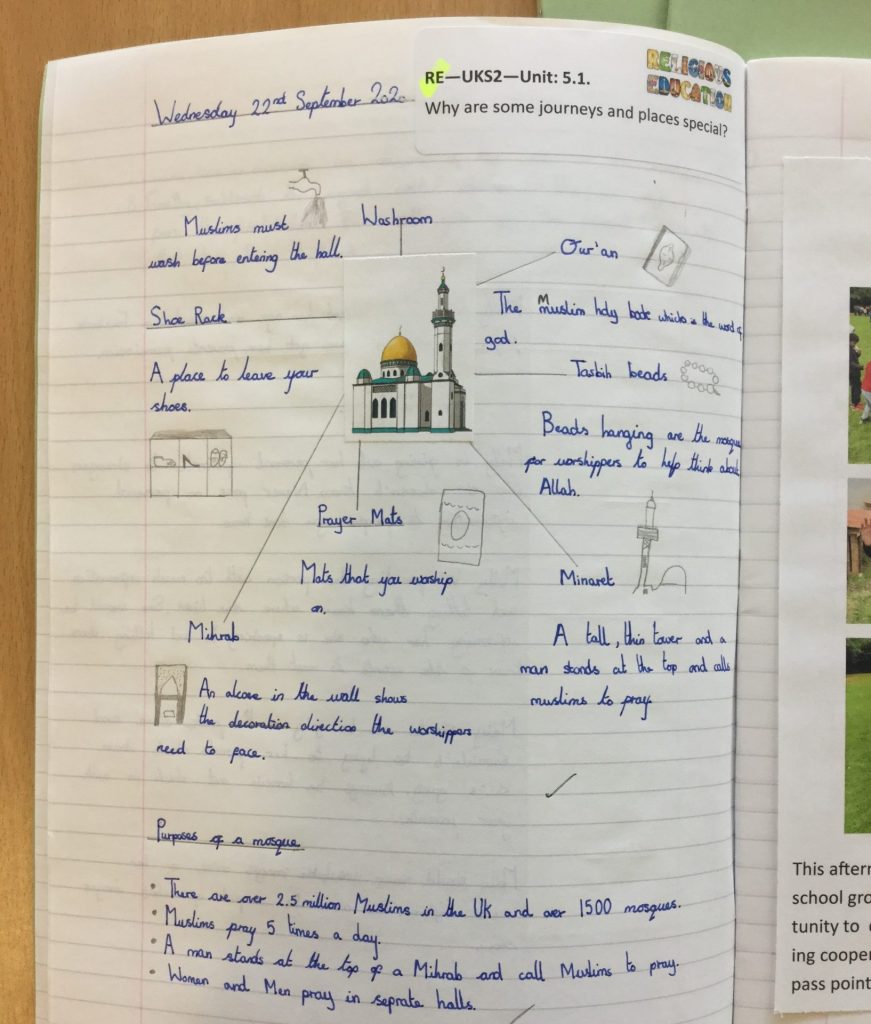 RELIGIOUS
EDUCATION
RE—UKS2—Unit: 5.1.
Why are some journeys and places special?
Wednesday 22nd September 202
Washroom
Muslims must
wash before entering the hall.
Shoe Rack
A place to leave your
shoes.
Qur'an
The Muslim holy book which is the word of
god.
Tasbih beads
Beads hanging are the mosque
for worshippers to help think about
Allah.
Prayer Mats
Mats that you worship
on.
Minaret
A tall, thin tower and a
man stands at the top and calls
muslims to pray
Mihrab
An alcove in the wall shows
the decoration direction the worshippers
need to face.
Purposes of a mosque
• There are over 2.5 million Muslims in the UK and over 1500 mosques.
• Muslims pray 5 times a day.
• A man stands at the top of a Mihrab and call Muslims to pray.
• Women and Men pray in seprate halls.
This aftern
school gro
tunity to
ing cooper
pass point